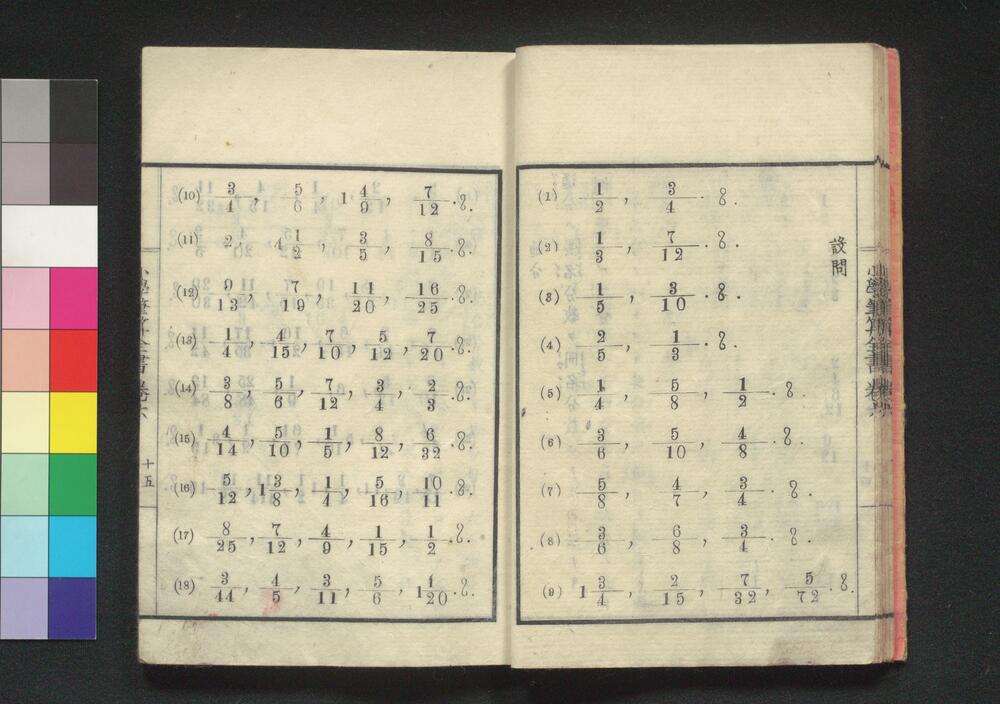 設問
(1) 1/2, 3/4.?.
(2) 1/3, 7/12.?.
(3) 1/5, 3/10.?.
(4) 2/5, 1/3.?.
(5) 1/4, 5/8, 1/2.?.
(6) 3/6, 5/10, 4/8.?.
(7) 5/8, 4/7, 3/4.?.
(8) 3/6, 6/8, 3/4.?.
(9) 1 3/4, 2/15, 7/32, 5/72.?.
小學筆算全書 卷六
(10) 3/4, 5/6, 1 4/9, 7/12.?.
(11) 2, 4 1/2, 3/5, 8/15.?.
(12) 9/13, 7/19, 11/20, 16/25.?.
(13) 1/4, 4/15, 7/10, 5/12, 7/20.?.
(14) 3/8, 5/6, 7/12, 3/4, 2/3.?.
(15) 4/14, 5/10, 1/5, 8/12, 6/32.?.
(16) 5/12, 1 3/8, 1/4, 5/16, 10/11.?.
(17) 8/25, 7/12, 4/9, 1/15, 1/2.?.
(18) 3/44, 4/5, 3/11, 5/6, 1 1/20.?.
十五